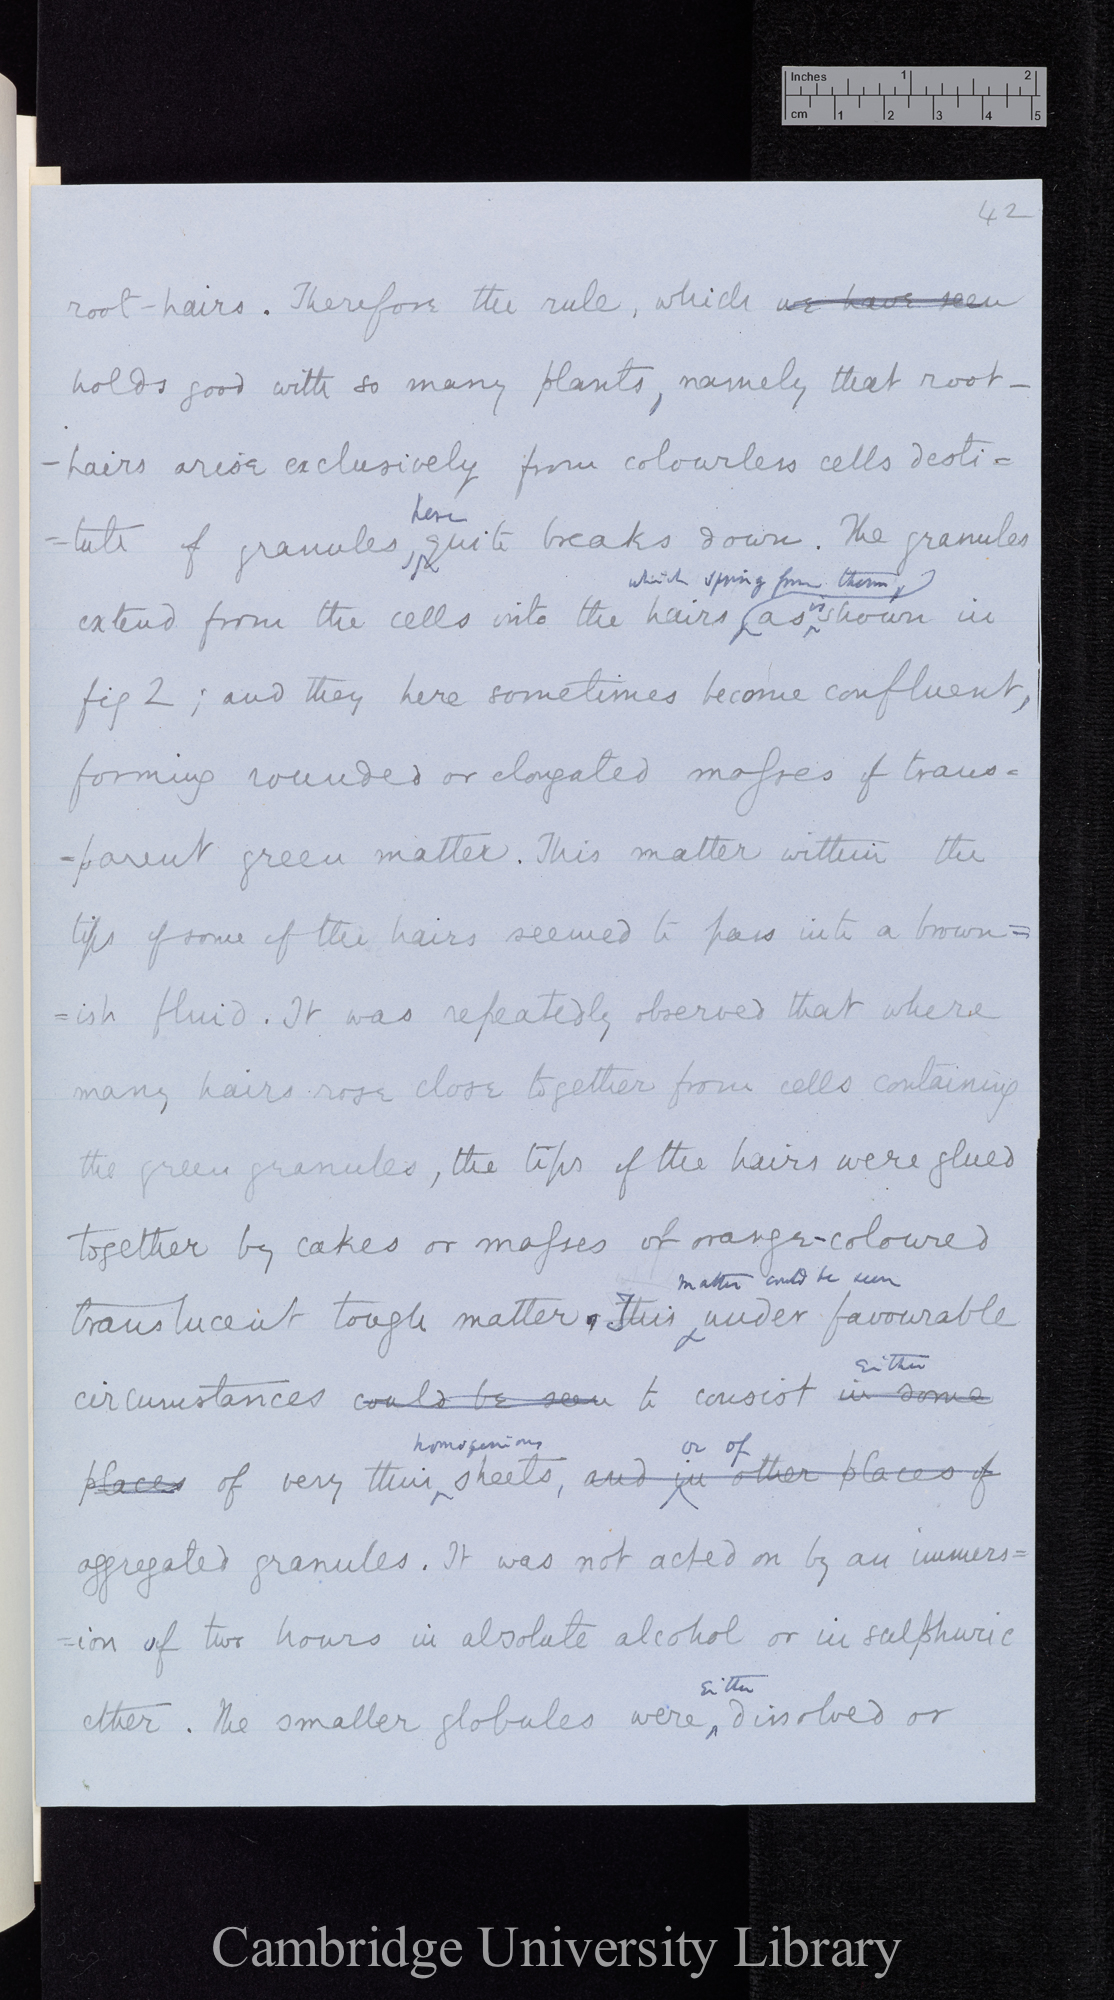 Inches 1 2
cm 1 2 3 4 5
42
root-hairs. Therefore the rule, which we have seen
holds good with so many plants, namely that root-
-hairs arise exclusively from colourless cells desti=
here
=tute of granules, quite breaks down. The granules
which spring from them,
extend from the cells into the hairs (as is shown in
fig 2; and they here sometimes become confluent,
forming rounded or elongated masses of trans=
=parent green matter. This matter within the
tips of some of the hairs seemed to pass into a brown=
=ish fluid. It was repeatedly observed that where
many hairs rose close together from cells containing
the green granules, the tips of the hairs were glued
together by cakes or masses of orange-coloured
matter could be seen
translucent tough matter. This under favourable
Either
circumstances could be seen to consist in some
homogenious or of
places of very thin sheets, and in other places of
aggregated granules. It was not acted on by an immers=
=ion of two hours in absolute alcohol or in sulphuric
Either
ether. The smaller globules were dissolved or
Cambridge University Library